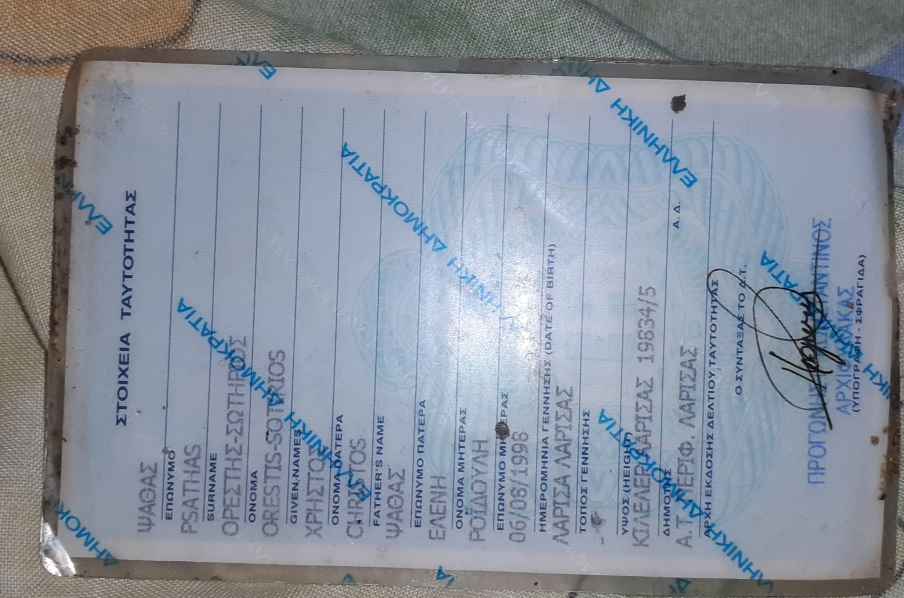 ΣΤΟΙΧΕΙΑ ΤΑΥΤΟΤΗΤΑΣ
ΨΑΘΑΣ
ΕΠΩΝΥΜΟ
PSATHAS
SURNAME
ΟΡΕΣΤΗΣ-ΣΩΤΗΡΙΟΣ
ΟΝΟΜΑ
ORESTIS-SOTIRIOS
GIVEN NAMES
ΧΡΗΣΤΟΣ
ΟΝΟΜΑ ΠΑΤΕΡΑ
CHRISTOS
FATHER'S NAME
ΨΑΘΑΣ
ΕΠΩΝΥΜΟ ΠΑΤΕΡΑ
ΕΛΕΝΗ
ΟΝΟΜΑ ΜΗΤΕΡΑΣ
ΡΟΙΔΟΥΛΗ
ΕΠΩΝΥΜΟ ΜΗΤΕΡΑΣ
06/08/1998
ΗΜΕΡΟΜΗΝΙΑ ΓΕΝΝΗΣΗΣ (DATE OF BIRTH)
ΛΑΡΙΣΑ ΛΑΡΙΣΑΣ
ΤΟΠΟΣ ΓΕΝΝΗΣΗΣ
ΥΨΟΣ (HEIGHT)
ΚΙΛΕΛΕΡ ΛΑΡΙΣΑΣ 19834/5
ΔΗΜΟΤΗΣ Α.Δ.
Α.Τ. ΠΕΡΙΦ. ΛΑΡΙΣΑΣ
ΑΡΧΗ ΕΚΔΟΣΗΣ ΔΕΛΤΙΟΥ ΤΑΥΤΟΤΗΤΑΣ
Ο ΣΥΝΤΑΞΑΣ ΤΟ Δ.Τ.
ΑΡΧΙΦΥΛΑΚΑΣ
(ΥΠΟΓΡΑΦΗ - ΣΦΡΑΓΙΔΑ)
ΕΛΛΗΝΙΚΗ ΔΗΜΟΚΡΑΤΙΑ
ΕΛΛΗΝΙΚΗ ΔΗΜΟΚΡΑΤΙΑ